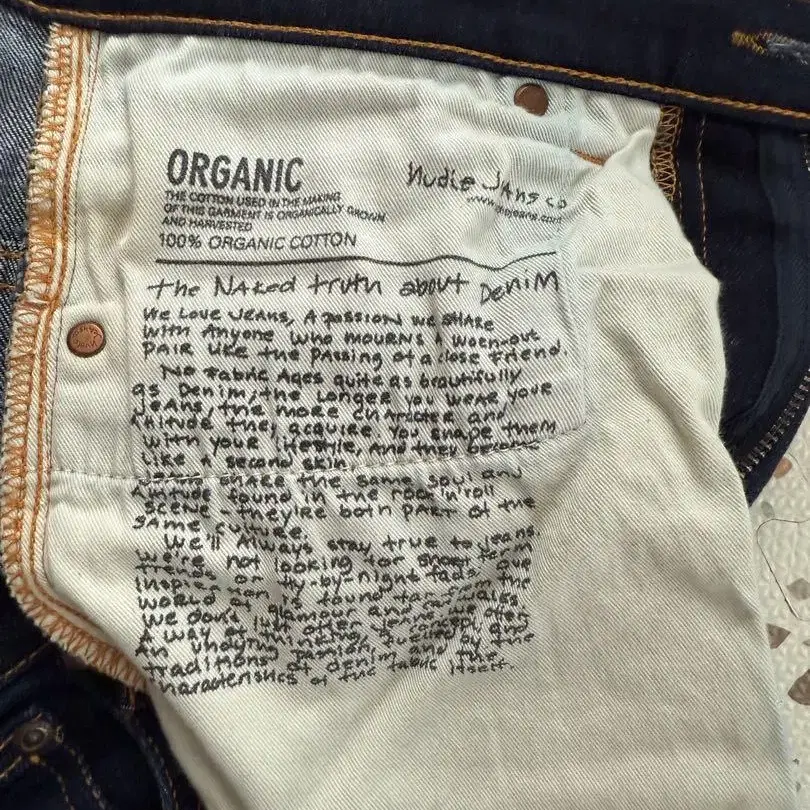 ORGANIC
THE COTTON USED IN THE MAKING
OF THIS GARMENT IS ORGANICALLY GROWN
AND HARVESTED
100% ORGANIC COTTON
Nudie Jeans co
the Naked truth about Denim
We Love Jeans, A passion we share
with Anyone who mourns A worn-out
pair like the passing of a close friend.
No fabric Ages quite as beautifully
as Denim, the longer you wear your
Jeans, the more character and
Attitude they acquire. You shape them
with your lifestyle, And they become
like A second skin.
Jeans share the same soul and
Attitude found in the rock'n'roll
scene - they're both part of the
same culture.
We'll Always stay true to jeans.
We're not looking for short term
trends or fly-by-night fads. Our
inspiration is found far from the
world of glamour and catwalks
We
A way of
An undying passion, fueled by the
traditions of denim and the
characteristics of the fabric itself.